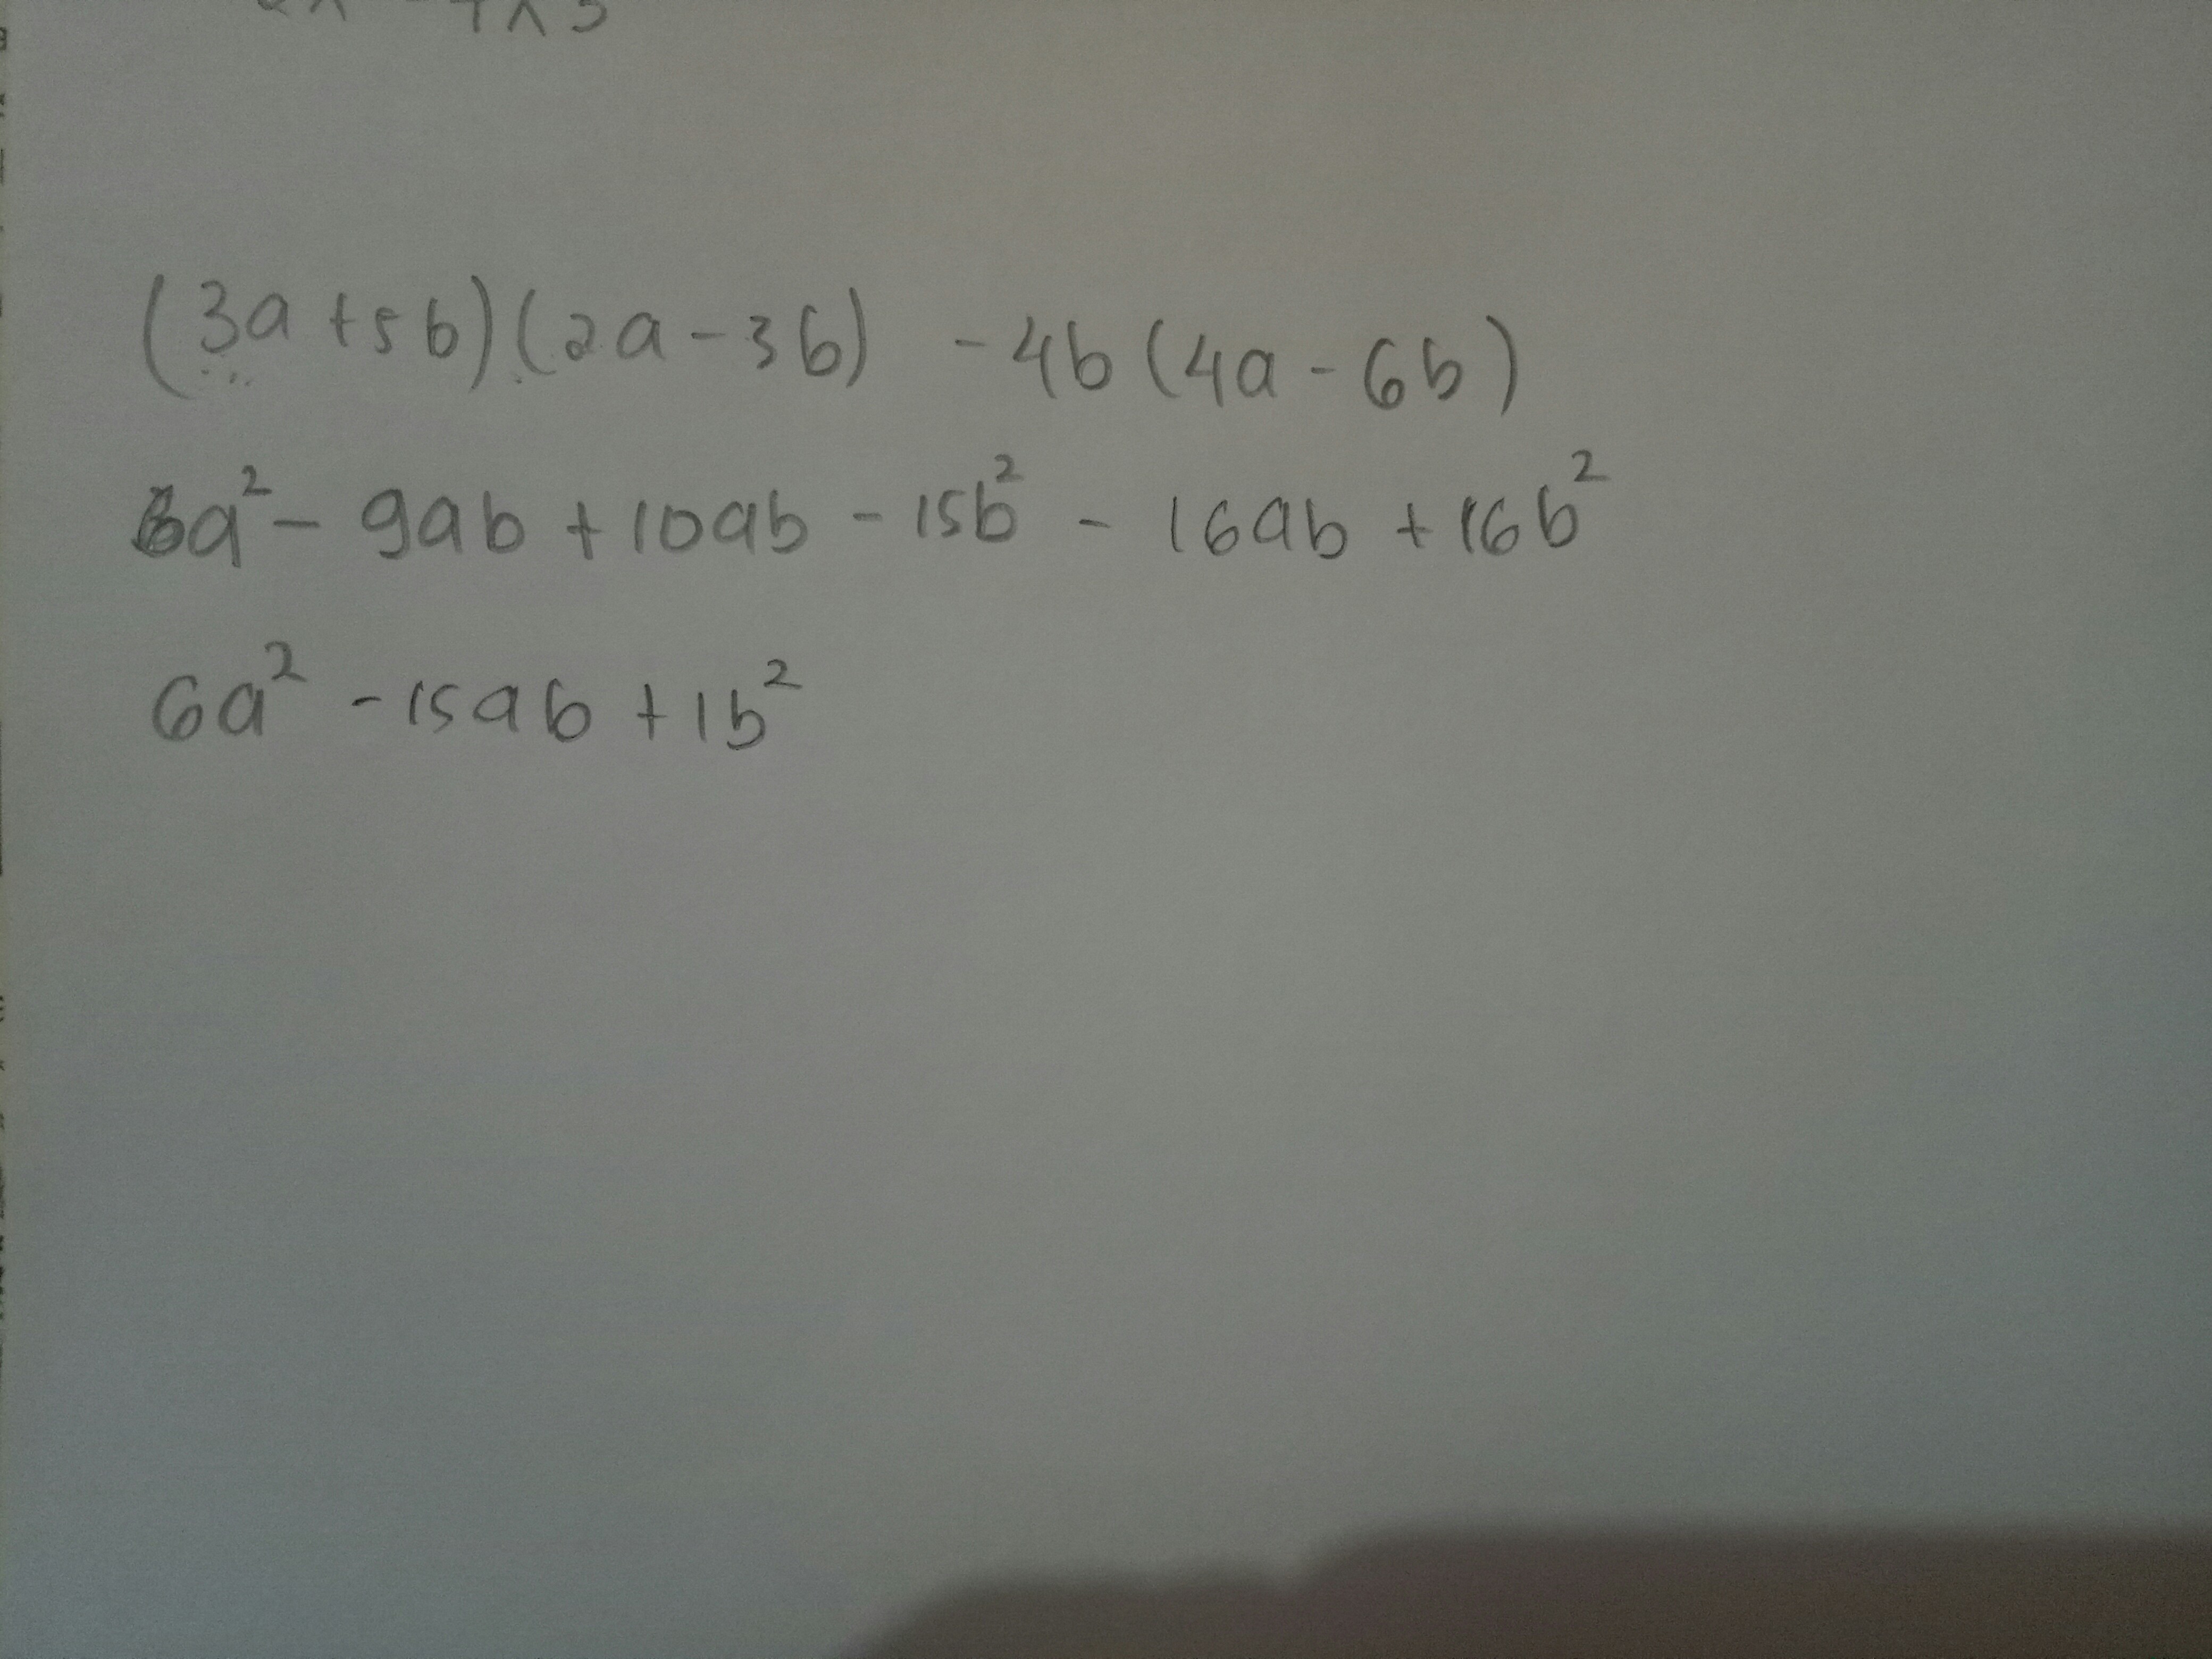 (3a+5b)(2a-3b) -4b(4a-6b)
6a² - 9ab + 10ab - 15b² - 16ab + 16b²
6a² - 15ab + 1b²